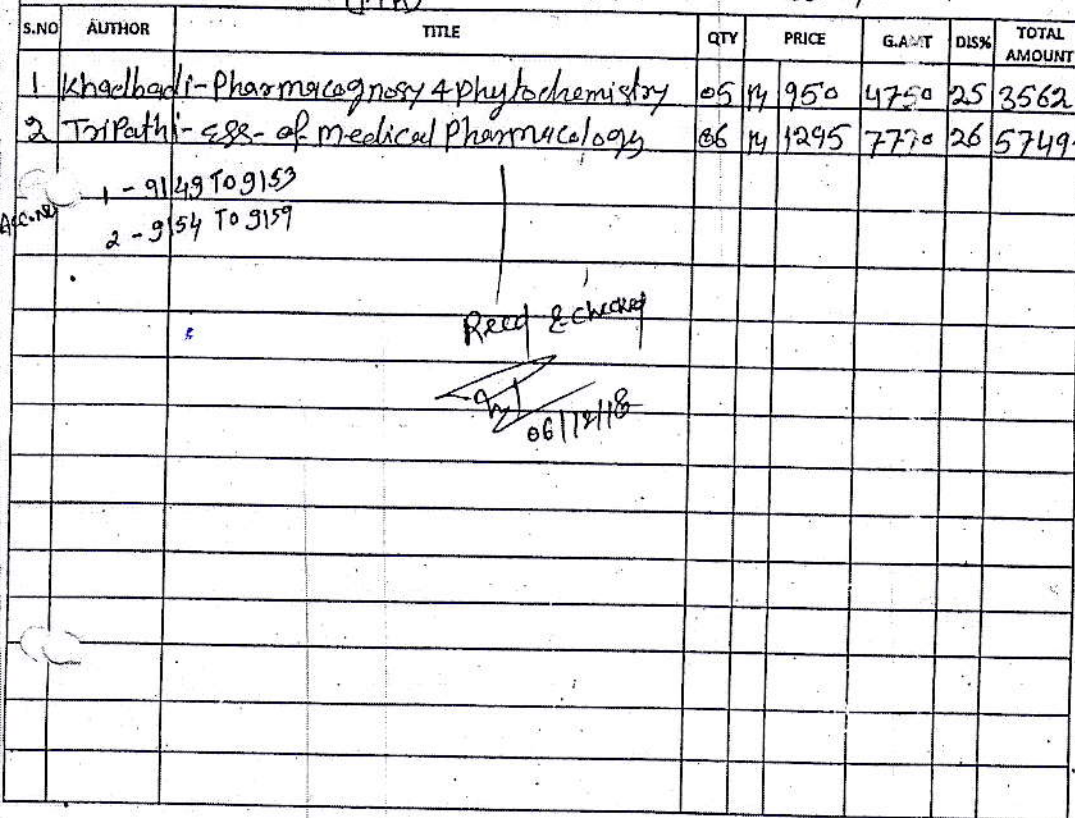 S.NO AUTHOR TITLE QTY PRICE G.AMT DIS% TOTAL AMOUNT
1 Khadbadi-Pharmacognosy & phytochemistry 05 14 950 4750 25 3562
2 Tripathi-ess-of medical pharmacology 06 14 1295 7770 26 5749
Acc.no 1 - 9149 TO 9153
2 - 9154 TO 9159
Recd & checked
06/12/18